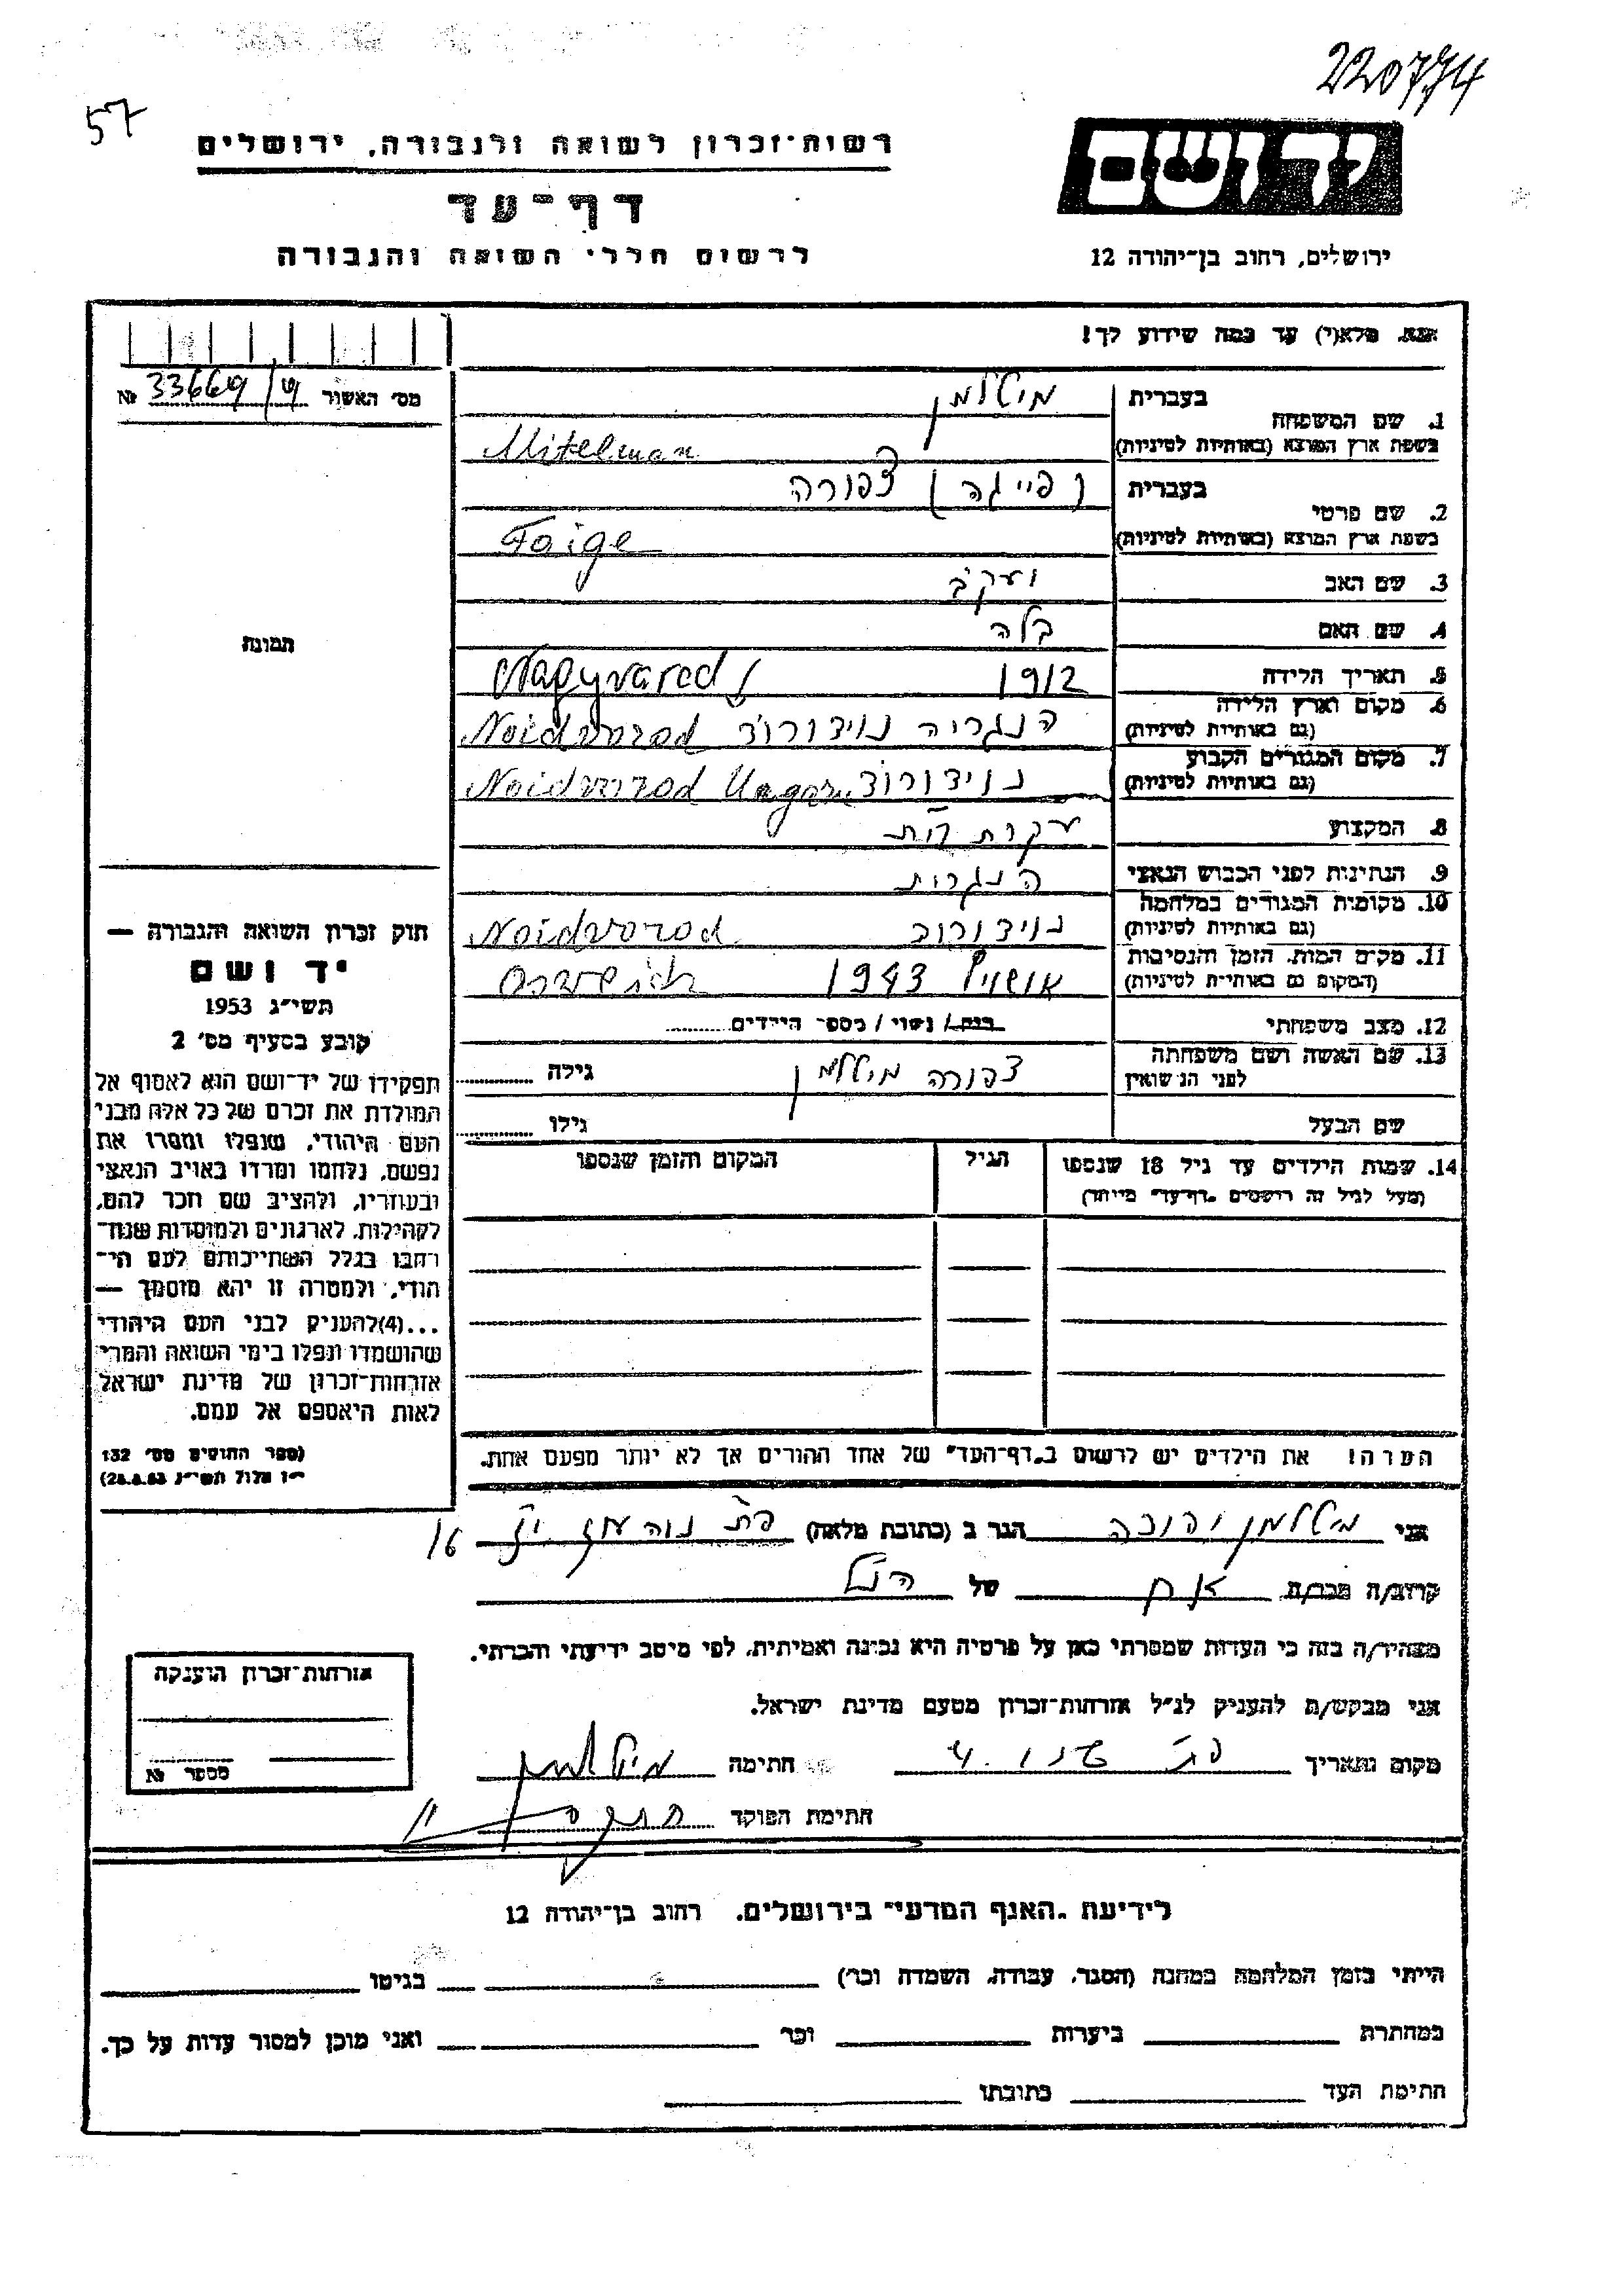 220774
57
יד ושם
רשות־זכרון לשואה ולגבורה, ירושלים
דף־עד
לרשום חללי השואה והגבורה
ירושלים, רחוב בן־יהודה 12
אנא, מלא(י) עד כמה שידוע לך!
מס׳ האשור 33669/ № 
1. שם המשפחה
בעברית מיטלמן
בשפת ארץ המוצא (באותיות לטיניות) Mitelman
2. שם פרטי
בעברית (פייגה) צפורה
בשפת ארץ המוצא (באותיות לטיניות) Faige
3. שם האב יעקב
4. שם האם בלה
5. תאריך הלידה 1912 Nagyvarad
6. מקום וארץ הלידה
(גם באותיות לטיניות) הנגריה נוידורוד Noidvorod
7. מקום המגורים הקבוע
(גם באותיות לטיניות) נוידורוד Noidvorod
8. המקצוע עקרת בית
9. הנתינות לפני הכבוש הנאצי הנגרית
10. מקומות המגורים במלחמה
(גם באותיות לטיניות) Noidvorod
11. מקום המות, הזמן והנסיבות
(המקום גם באותיות לטיניות) 1943
12. מצב משפחתי רווק / נשוי / מספר הילדים
13. שם האשה ושם משפחתה
לפני הנישואין צפורה מיטלמן גילה
שם הבעל גילו
14. שמות הילדים עד גיל 18 שנספו
(מעל לגיל זה רושמים „דף־עד״ מיוחד)
הגיל
המקום והזמן שנספו
הערה! את הילדים יש לרשום ב„דף־העד״ של אחד ההורים אך לא יותר מפעם אחת.
תמונה
חוק זכרון השואה והגבורה —
יד ושם
תשי״ג 1953
קובע בסעיף מס׳ 2
תפקידו של יד־ושם הוא לאסוף אל
המולדת את זכרם של כל אלה מבני
העם היהודי, שנפלו ומסרו את
נפשם, נלחמו ומרדו באויב הנאצי
ובעוזריו, ולהציב שם וזכר להם,
לקהילות, לארגונים ולמוסדות שנח־
רבו בגלל השתייכותם לעם הי־
הודי, ולמטרה זו יהא מוסמך —
...(4)להעניק לבני העם היהודי
שהושמדו ונפלו בימי השואה והמרי
אזרחות־זכרון של מדינת ישראל
לאות היאספם אל עמם.
(ספר החוקים מס׳ 132
י״ז אלול תשי״ג 28.8.53)
אני מיטלמן הגר ב (כתובת מלאה) 16
קרוב/ה מכר/ת אח של הנ״ל
מצהיר/ה בזה כי העדות שמסרתי כאן על פרטיה היא נכונה ואמיתית, לפי מיטב ידיעתי והכרתי.
אני מבקש/ת להעניק לנ״ל אזרחות־זכרון מטעם מדינת ישראל.
מקום ותאריך חתימה מיטלמן
חתימת הפוקד
אזרחות־זכרון הוענקה
מספר №
לידיעת „האגף המדעי״ בירושלים, רחוב בן־יהודה 12
הייתי בזמן המלחמה במחנה (הסגר, עבודה, השמדה וכו׳) בגיטו
במחתרת ביערות וכו׳ ואני מוכן למסור עדות על כך.
חתימת העד כתובתו